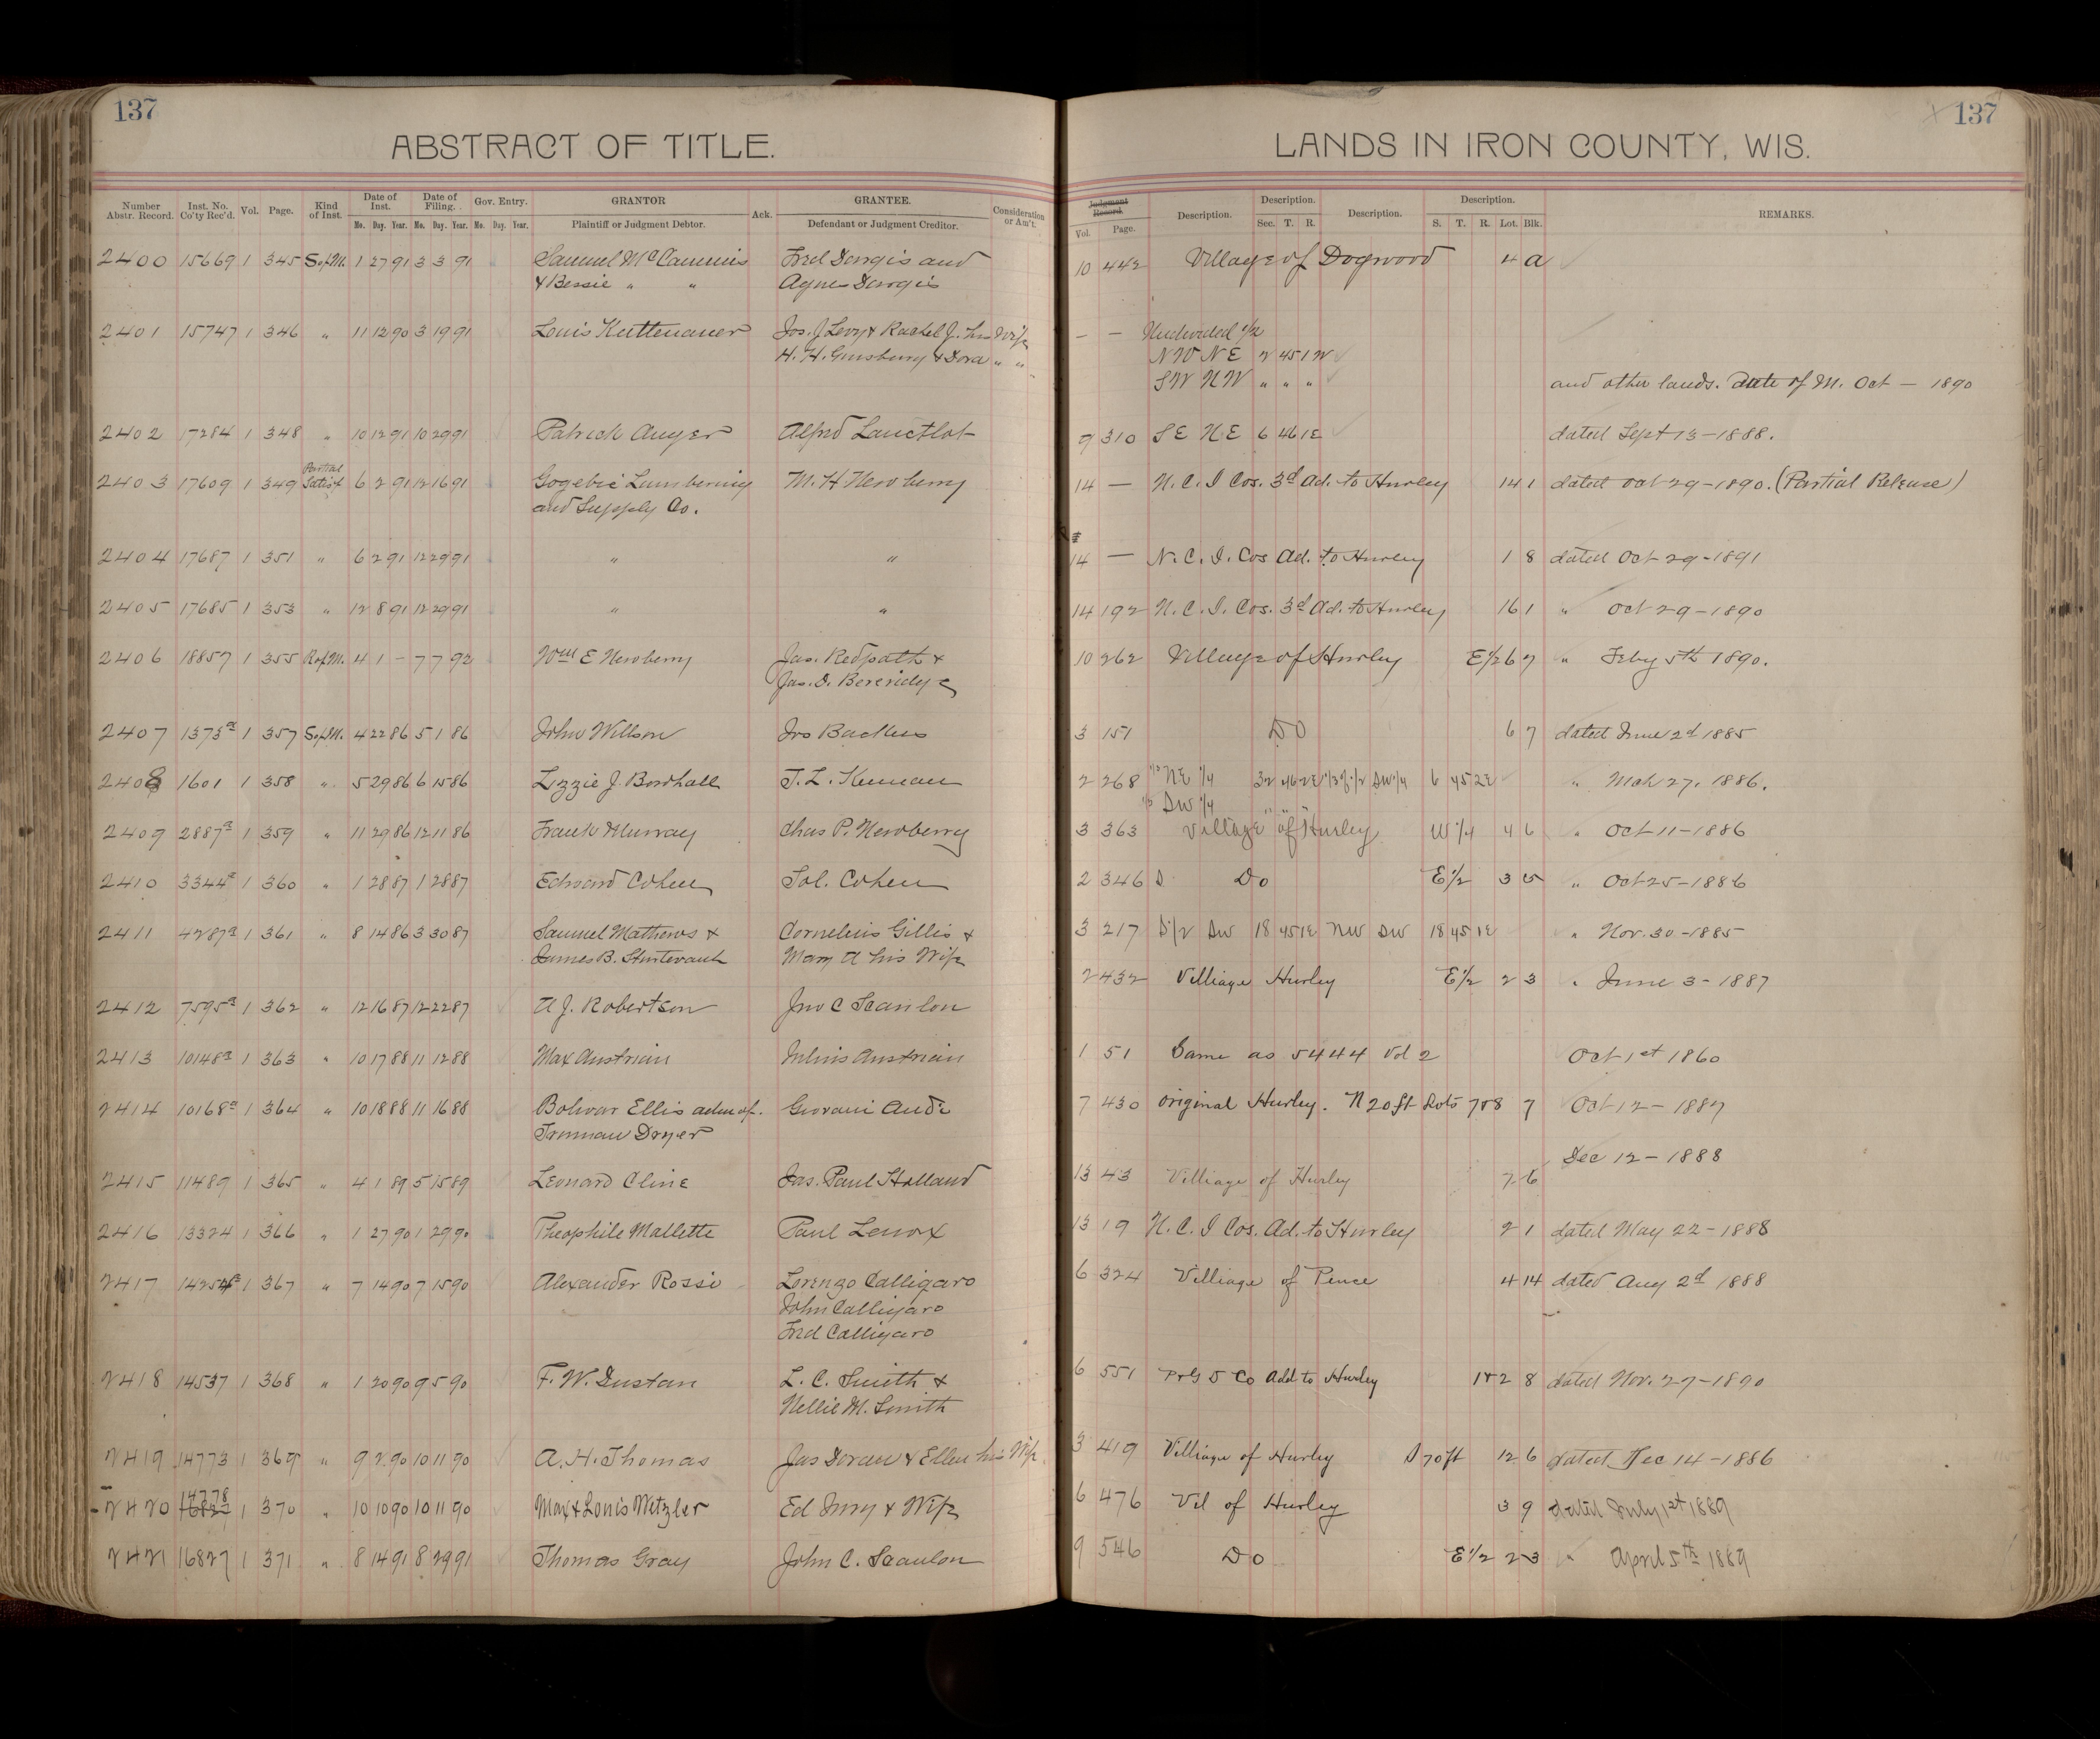 137
ABSTRACT OF TITLE.
Number Abstr. Record. Inst. No. Co'ty Rec'd. Vol. Page. Kind of Inst. Date of Inst. Date of Filing. Gov. Entry. GRANTOR Ack. GRANTEE. Consideration or Am't.
Mo. Day. Year. Mo. Day. Year. Mo. Day. Year. Plaintiff or Judgment Debtor. Defendant or Judgment Creditor.
2400 15669 1 345 S of M. 1 27 91 3 3 91 Samuel McCammis Fred Dargis and
& Bessie " " Agnes Dargis
2401 15747 1 346 " 11 12 90 3 19 91 Louis Kuttenauer Jos. J Levy & Rachel J. his Wife
H. H. Ginsburg & Dora " "
2402 17284 1 348 " 10 12 91 10 29 91 Patrick Auger Alfred Lanctlot
2403 17609 1 349 Partial Satisf 6 2 91 12 16 91 Gogebic Lumbering M. H Newberry
and Supply Co.
2404 17687 1 351 " 6 2 91 12 29 91 " "
2405 17685 1 353 " 12 8 91 12 29 91 " "
2406 18857 1 355 R of M. 4 1 - 7 7 92 Wm E Newberry Jas. Redpath &
Jas. D. Beveridge
2407 1373a 1 357 S of M. 4 22 86 5 1 86 John Willson Jro Backus
2408 1601 1 358 " 5 29 86 6 15 86 Lizzie J. Bordhall T. L. Kennan
2409 2887a 1 359 " 11 29 86 12 11 86 Frank Murray Chas P. Newberry
2410 3344a 1 360 " 1 28 87 1 28 87 Edward Cohen Sol. Cohen
2411 4287a 1 361 " 8 14 86 3 30 87 Samuel Mathews & Cornelius Gillis &
James B. Sturtevant Mary A his Wife
2412 7595a 1 362 " 12 16 87 12 22 87 A J. Robertson Jno C Scanlon
2413 10148a 1 363 " 10 17 88 11 12 88 Max Austrian Julius Austrian
2414 10168a 1 364 " 10 18 88 11 16 88 Bolivar Ellis adm of. Giovani Audi
Trumman Dryer
2415 11489 1 365 " 4 1 89 5 15 89 Leonard Cline Jas. Paul Holland
2416 13324 1 366 " 1 27 90 1 29 90 Theophile Mallette Paul Lenox
2417 14254a 1 367 " 7 14 90 7 15 90 Alexander Rossi Lorenzo Calligaro
John Calligaro
Fred Calligaro
2418 14537 1 368 " 1 20 90 9 5 90 F. W. Dustan L. C. Smith &
Nellie M. Smith
2419 14773 1 369 " 9 2 90 10 11 90 A. H. Thomas Jas Doran & Ellen his Wife
2420 14778 1 370 " 10 10 90 10 11 90 Max & Louis Wetzler Ed Jury & Wife
2421 16827 1 371 " 8 14 91 8 29 91 Thomas Gray John C. Scanlon
137
LANDS IN IRON COUNTY, WIS.
Judgment Record. Description. Description. Description. Description. REMARKS.
Vol. Page. Sec. T. R. S. T. R. Lot. Blk.
10 442 Village of Dogwood 4 A
- - Undivided 1/2
NW NE 2 45 1W
SW NW " " " and other lands. Date of M. Oct - 1890
9 310 SE NE 6 46 1E dated Sept 13-1888.
14 - N. C. I Cos. 3d Ad. to Hurley 14 1 dated Oct 29-1890. (Partial Release)
14 - N. C. I. Cos Ad. to Hurley 1 8 dated Oct 29-1891
14 192 N. C. I. Cos. 3d Ad. to Hurley 16 1 " Oct 29-1890
10 262 Village of Hurley E1/2 6 7 " Feby 5th 1890.
3 151 DO 6 7 dated June 2d 1885
2 268 1/3 NE 1/4 32 46 2E 1/3 of 1/2 SW 1/4 6 45 2E " Mch 27. 1886.
1/3 SW 1/4 " " "
3 363 Village of Hurley W 1/4 4 6 " Oct 11-1886
2 346 Do E1/2 3 5 " Oct 25-1886
3 217 S1/2 SW 18 45 1E NW SW 18 45 1E " Nov. 30-1885
2 432 Villiage Hurley E1/2 2 3 " June 3-1887
1 51 Same as 5444 Vol 2 Oct 1st 1860
7 430 Original Hurley. N 20 ft Lots 7&8 7 Oct 12-1887
Dec 12-1888
13 43 Villiage of Hurley 7 6
13 19 N. C. I Cos. Ad. to Hurley 2 1 dated May 22-1888
6 324 Villiage of Pence 4 14 dated Aug 2d 1888
6 551 Add to Hurley 1&2 8 dated Nov. 27-1890
3 419 Villiage of Hurley S 70 ft 12 6 dated Dec 14-1886
6 476 Vil of Hurley 3 9 dated July 1st 1889
9 546 Do E1/2 2 3 " April 5th 1889